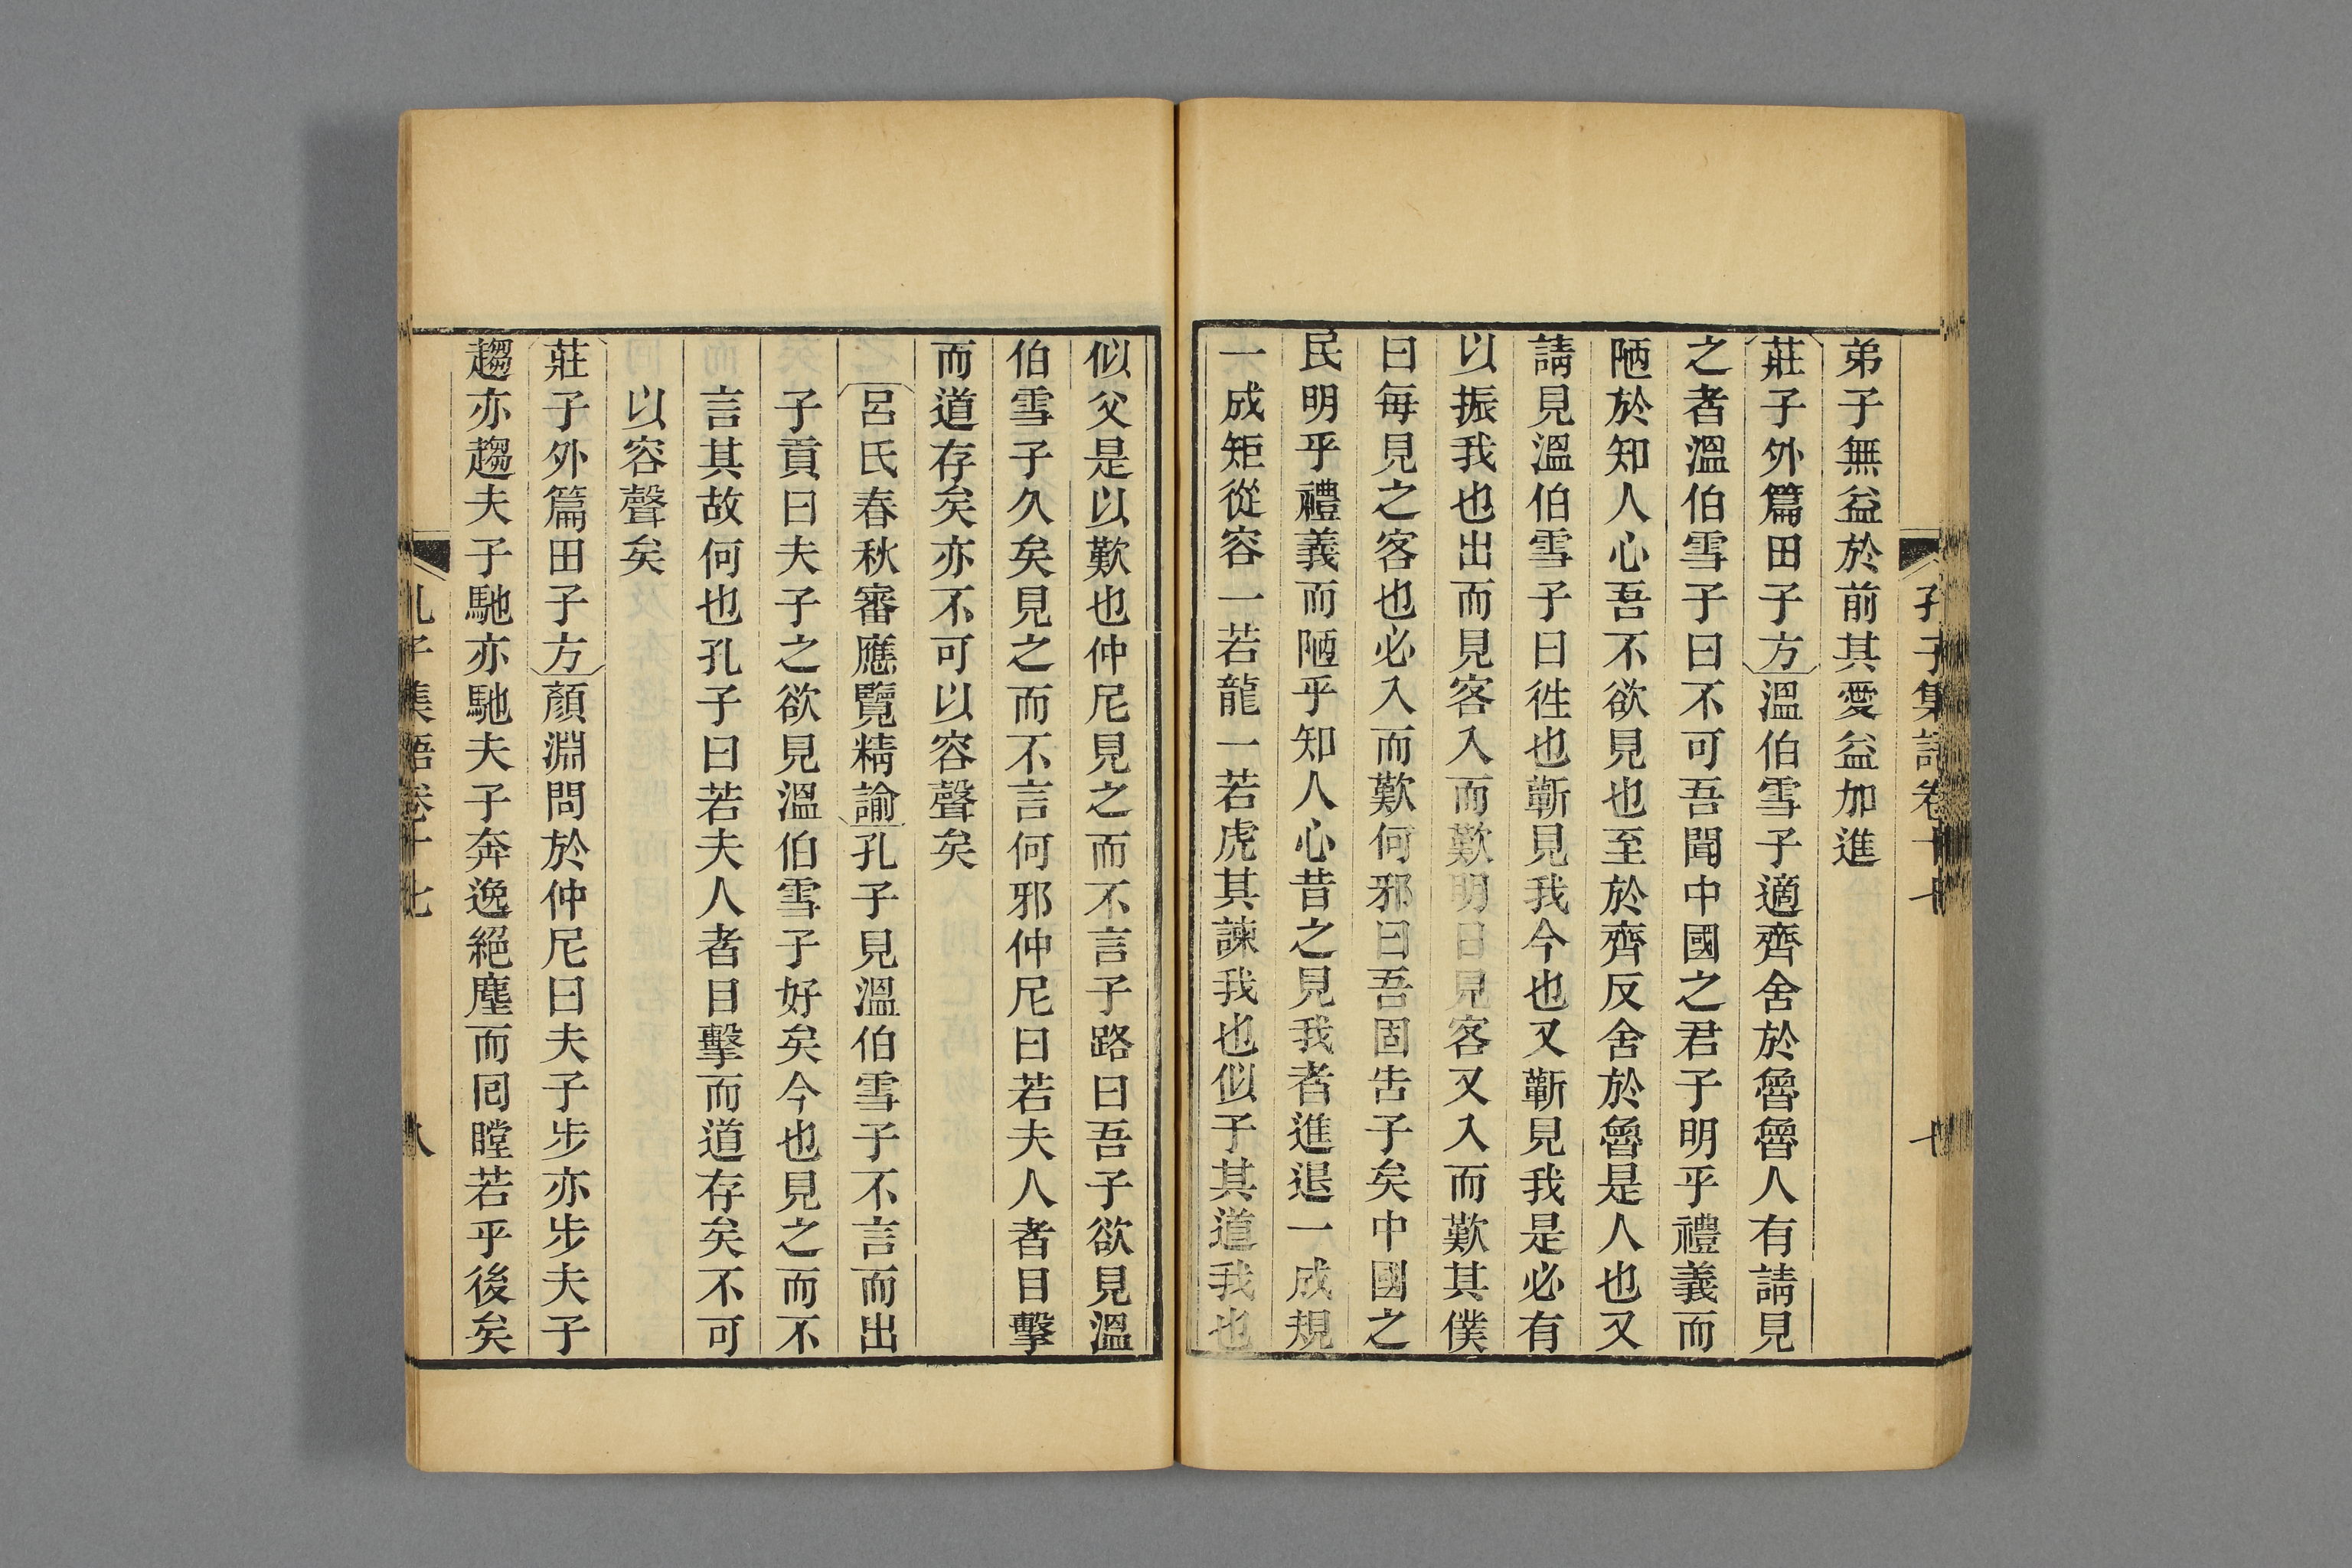 孔子集語卷十七
七
弟子無益於前其愛益加進
莊子外篇田子方溫伯雪子適齊舍於魯魯人有請見
之者溫伯雪子曰不可吾聞中國之君子明乎禮義而
陋於知人心吾不欲見也至於齊反舍於魯是人也又
請見溫伯雪子曰徃也蘄見我今也又蘄見我是必有
以振我也出而見客入而歎明日見客又入而歎其僕
曰每見之客也必入而歎何邪曰吾固告子矣中國之
民明乎禮義而陋乎知人心昔之見我者進退一成規
一成矩從容一若龍一若虎其諫我也似子其道我也
似父是以歎也仲尼見之而不言子路曰吾子欲見溫
伯雪子久矣見之而不言何邪仲尼曰若夫人者目擊
而道存矣亦不可以容聲矣
呂氏春秋審應覽精諭孔子見溫伯雪子不言而出
子貢曰夫子之欲見溫伯雪子好矣今也見之而不
言其故何也孔子曰若夫人者目擊而道存矣不可
以容聲矣
莊子外篇田子方顏淵問於仲尼曰夫子步亦步夫子
趨亦趨夫子馳亦馳夫子奔逸絕塵而回瞠若乎後矣
孔子集語卷十七
八